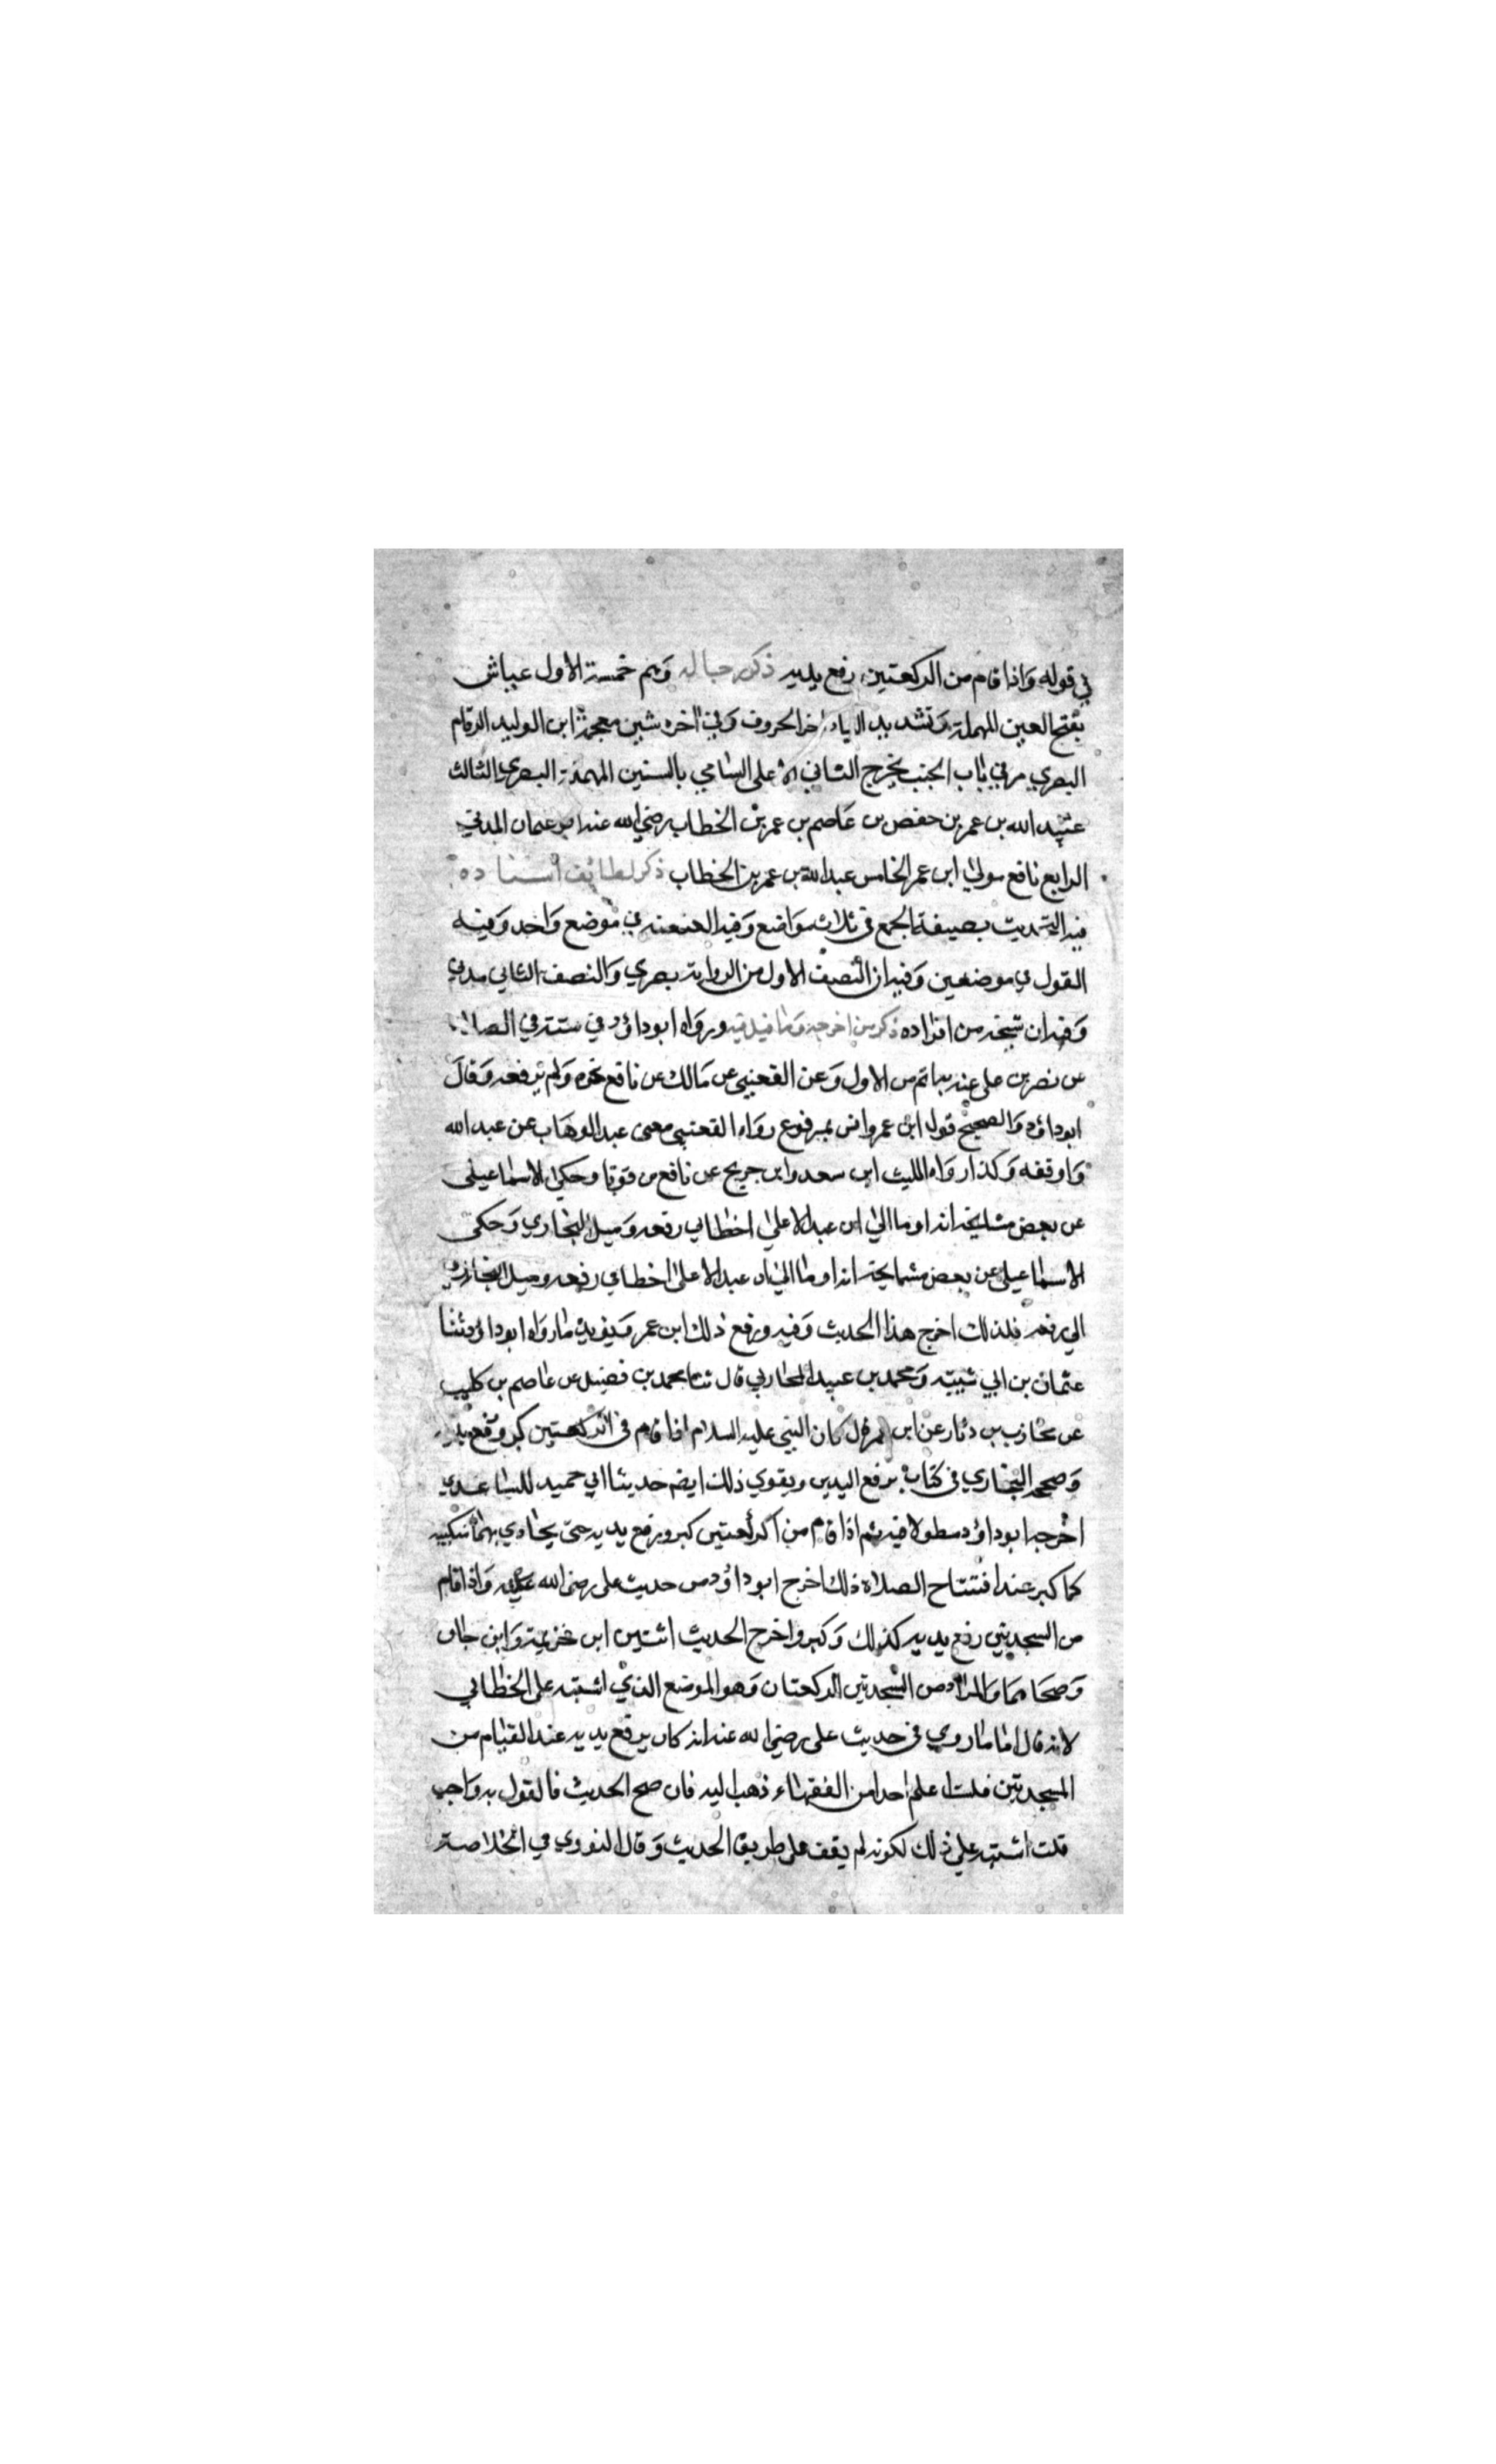 في قوله واذا قام من الركعتين رفع يديه ذكر رجاله وهم خمسة الاول عياش
بفتح العين المهملة وتشديد الياء اخر الحروف وفي اخره شين معجمة ابن الوليد الرقام
البصري مر في باب الجنب يخرج الثاني الاعلى السامي بالسين المهملة البصري الثالث
عبيد الله بن عمر بن حفص بن عاصم بن عمر بن الخطاب رضي الله عنه ابو عثمان المدني
الرابع نافع مولى ابن عمر الخامس عبد الله بن عمر بن الخطاب ذكر لطائف اسناده
فيه التحديث بصيغة الجمع في ثلاث مواضع وفيه العنعنه في موضع واحد وفيه
القول في موضعين وفيه ان النصف الاول من الرواية بصري والنصف الثاني مدني
وفيه ان شيخه من افراده ذكر من اخرجه وما قيل فيه ورواه ابو داؤد في سننه في الصلاة
عن نصر بن علي عنه باتم من الاول وعن القعنبي عن مالك عن نافع نحوه ولم يرفعه وقال
ابو داؤد والصحيح قول ابن عمر وليس بمرفوع رواه القعنبي معنى عبد الوهاب عن عبد الله
واوقفه وكذا رواه الليث ابن سعد وابن جريج عن نافع موقوفا وحكى الاسماعيلي
عن بعض مشايخه انه اوما الى ان عبد الاعلى اخطا في رفعه وميل البخاري وحكى
الاسماعيلي عن بعض مشايخه انه اوما الى ان عبد الاعلى اخطا في رفعه وميل البخاري
الى رفعه فلذلك اخرج هذا الحديث وفيه ورفع ذلك ابن عمر ويقويه ما رواه ابو داؤد ثنا
عثمان بن ابي شيبة ومحمد بن عبيد المحاربي قال ثنا محمد بن فضيل عن عاصم بن كليب
عن محارب بن دثار عن ابن عمر قال كان النبي عليه السلام اذا قام في الركعتين كبر ورفع يديه
وصححه البخاري في كتاب رفع اليدين ويقوي ذلك ايضا حديث ابي حميد الساعدي
اخرجه ابو داؤد مطولا فيه ثم اذا قام من الركعتين كبر ورفع يديه حتى يحاذي بهما منكبيه
كما كبر عند افتتاح الصلاة ذلك اخرج ابو داؤد من حديث علي رضي الله عنه واذا قام
من السجدتين رفع يديه كذلك وكبر واخرج الحديث اثنين ابن خزيمة وابن حبان
وصححاهما والمراد من السجدتين الركعتان وهو الموضع الذي اشتبه على الخطابي
لانه قال اما ما روي في حديث علي رضي الله عنه انه كان يرفع يديه عند القيام من
السجدتين فلست اعلم احدا من الفقهاء ذهب اليه فان صح الحديث فالقول به واجب
قلت اشتبه عليه ذلك لكونه لم يقف على طريق الحديث وقال النووي في الخلاصة